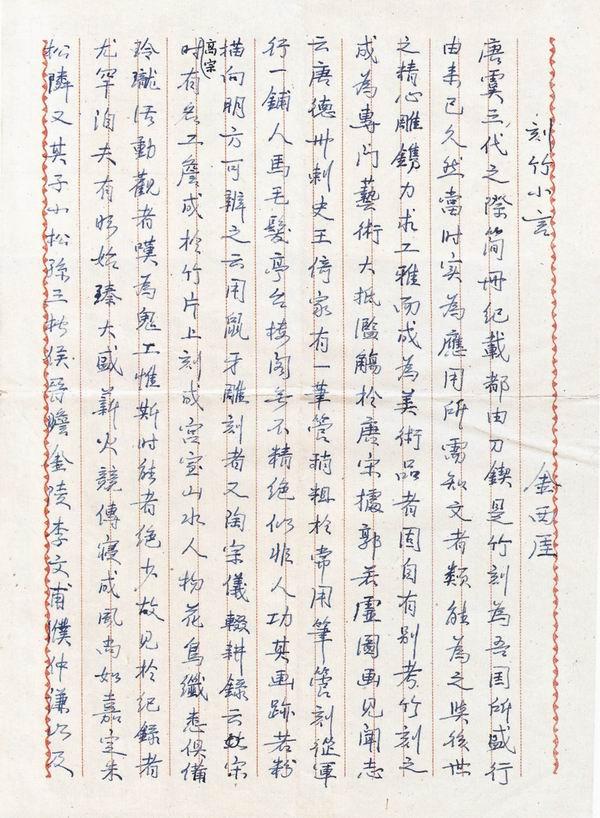 刻竹小言
金西厓
唐虞三代之際簡冊紀載都由刀鍥是竹刻為吾国所盛行
由来已久然當时实為應用所需知文者類能為之與後世
之精心雕鐫力求工雅而成為美術品者固自有别考竹刻之
成為專门藝術大抵濫觴於唐宋據郭若虛圖画見聞志
云唐德州刺史王倚家有一筆管稍粗於常用筆管刻從軍
行一鋪人馬毛髮亭台楼阁無不精绝似非人功其画跡若粉
描向明方可辨之云用鼠牙雕刻者又陶宗儀輟耕錄云宋
高宗
时有詹成於竹片上刻成宫室山水人物花鳥纖悉俱備
玲瓏活動觀者嘆為鬼工惟斯时能者绝少故見於纪錄者
尤罕洎夫有明始臻大盛薪火競傳寖成風尚如嘉定朱
松隣又其子小松孫三松侯晉瞻金陵李文甫濮仲谦以及